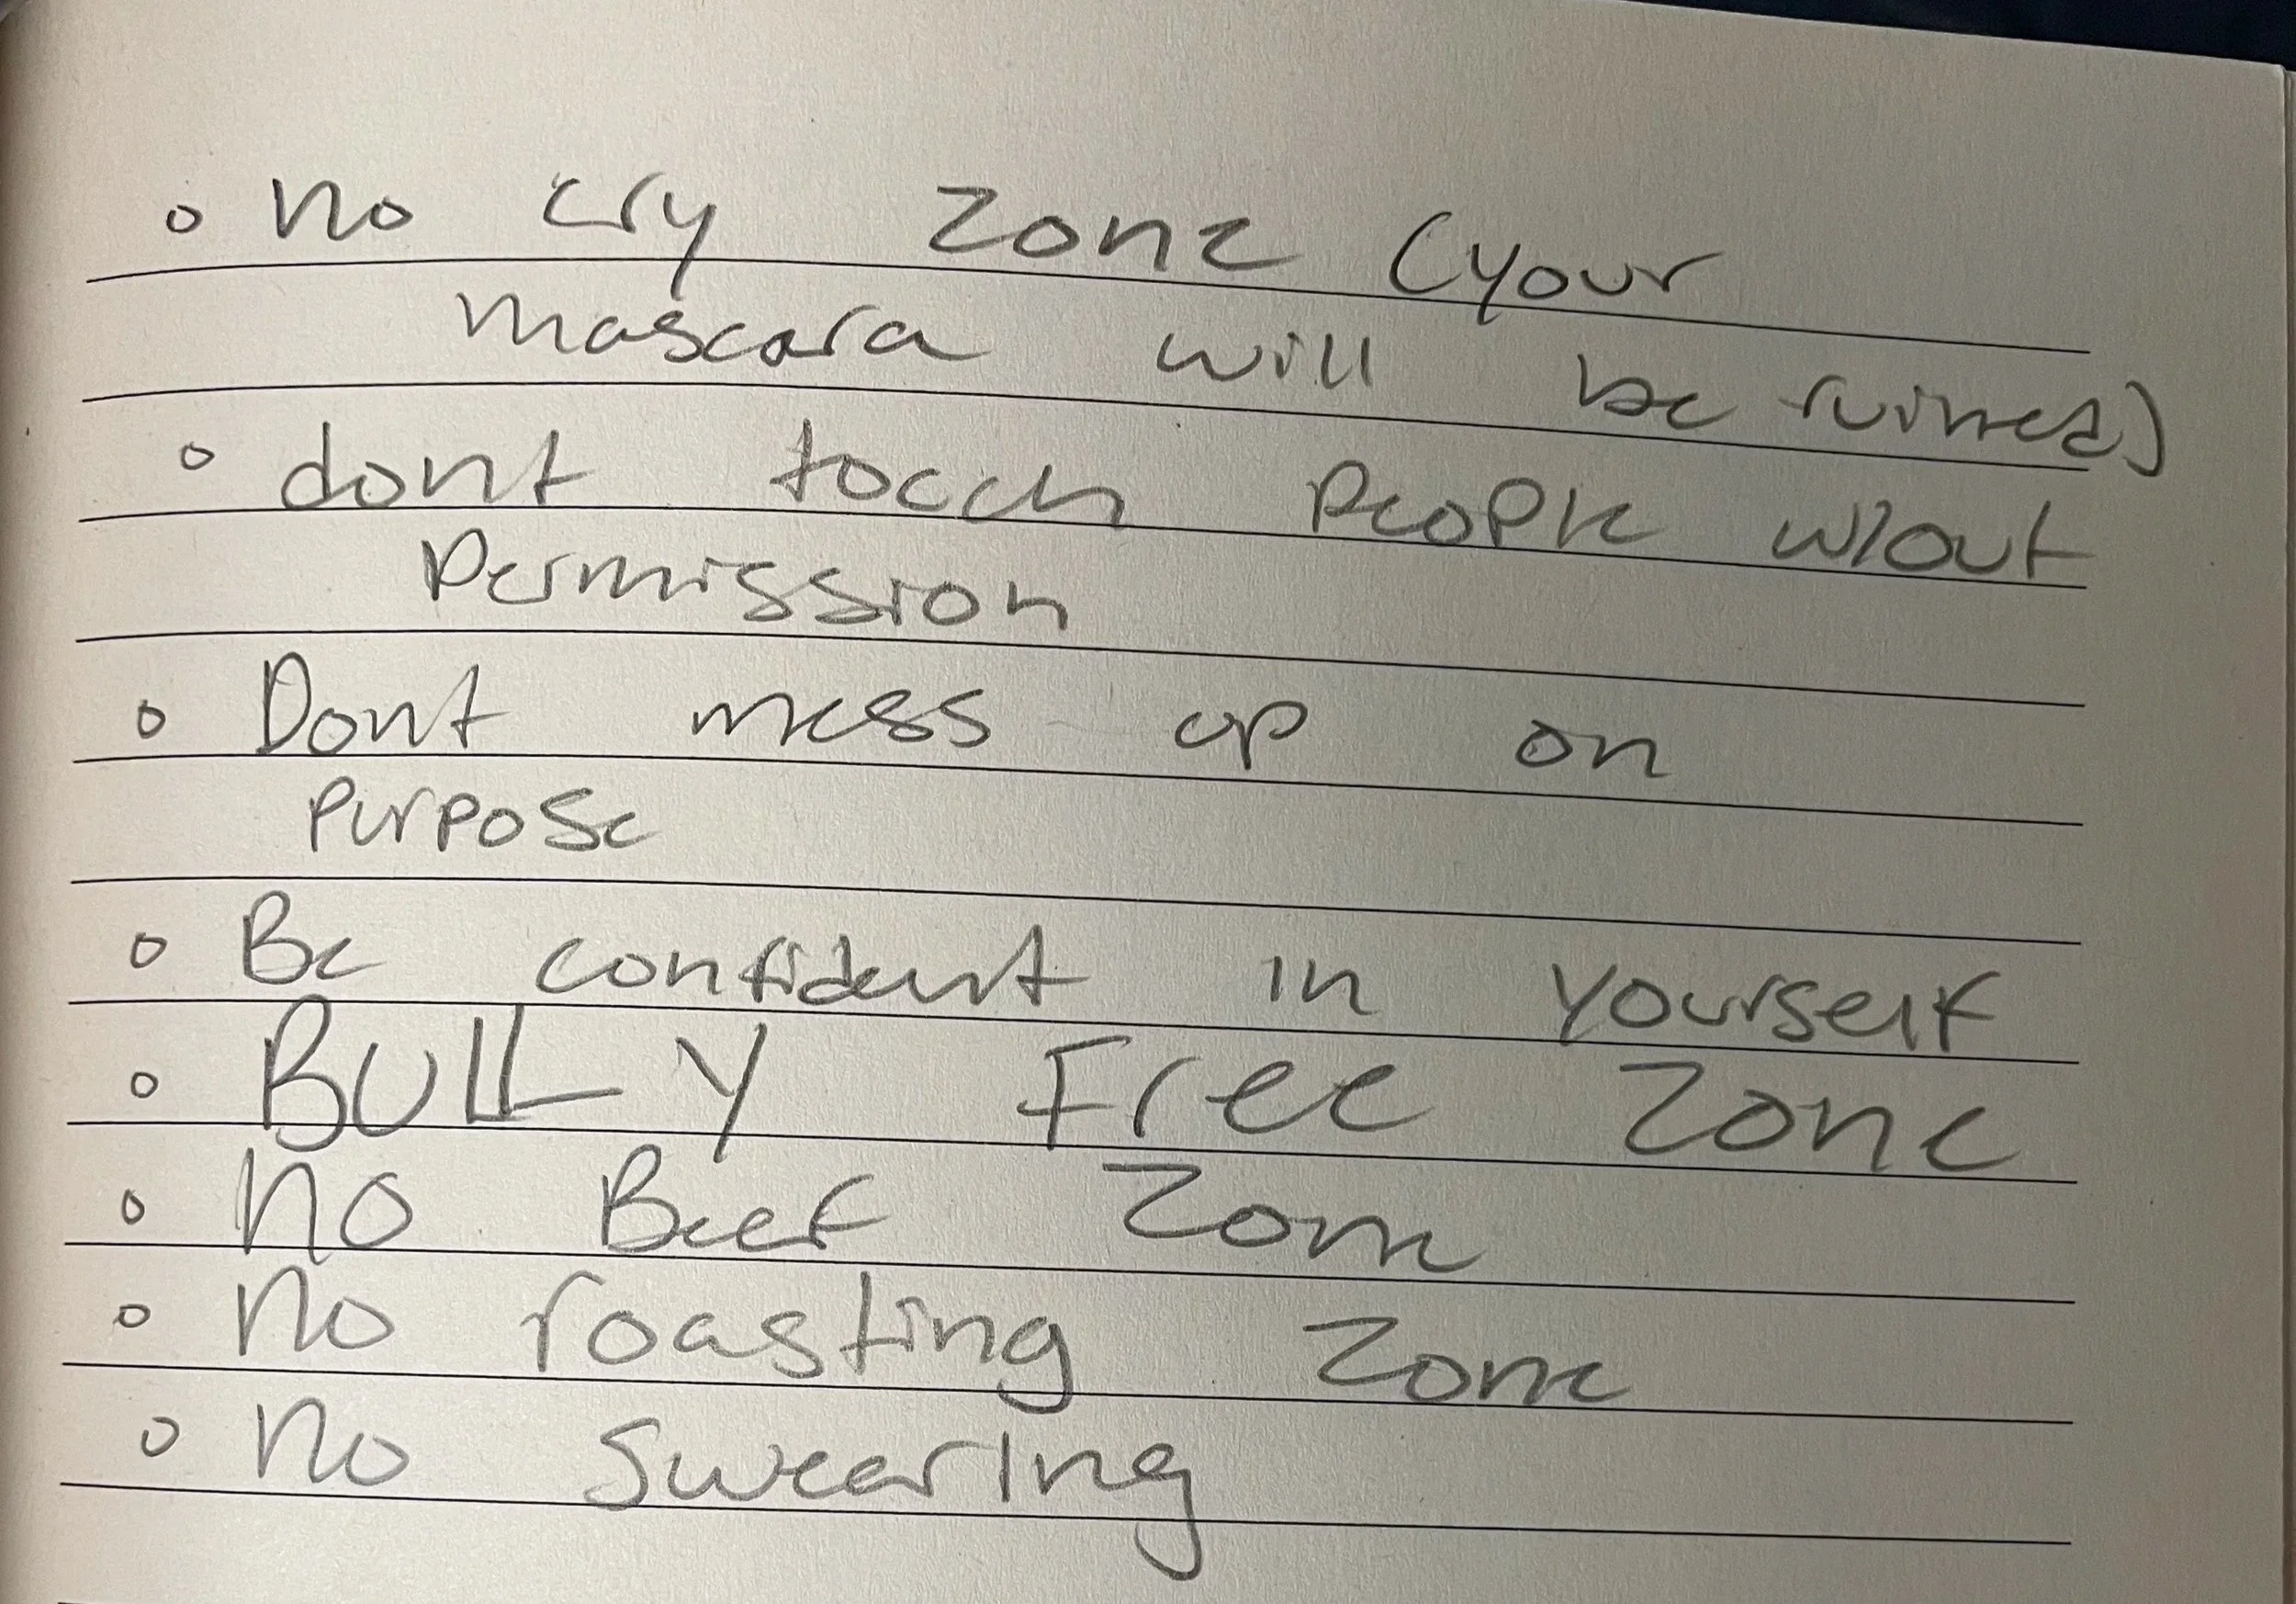 ◦ no cry zone (your
mascara will be ruined)
◦ dont touch people w/out
permission
◦ Dont mess up on
purpose
◦ Be confident in yourself
◦ BULLY Free Zone
◦ no Beef Zone
◦ no roasting zone
◦ no swearing